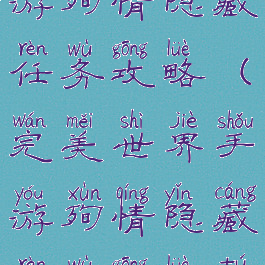 游殉情隐藏
rèn wù gōng lüè
任务攻略（
wán měi shì jiè shǒu
完美世界手
yóu xùn qíng yǐn cáng
游殉情隐藏
rèn wù gōng lüè